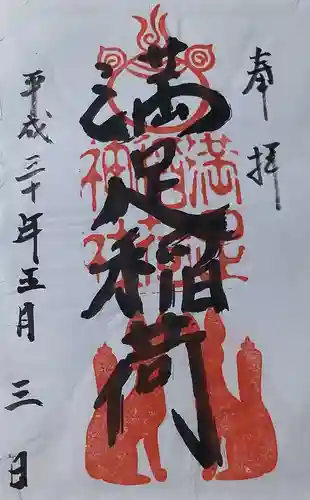 奉拝
満足稲荷
満足
稲荷
神社
平成三十年五月三日